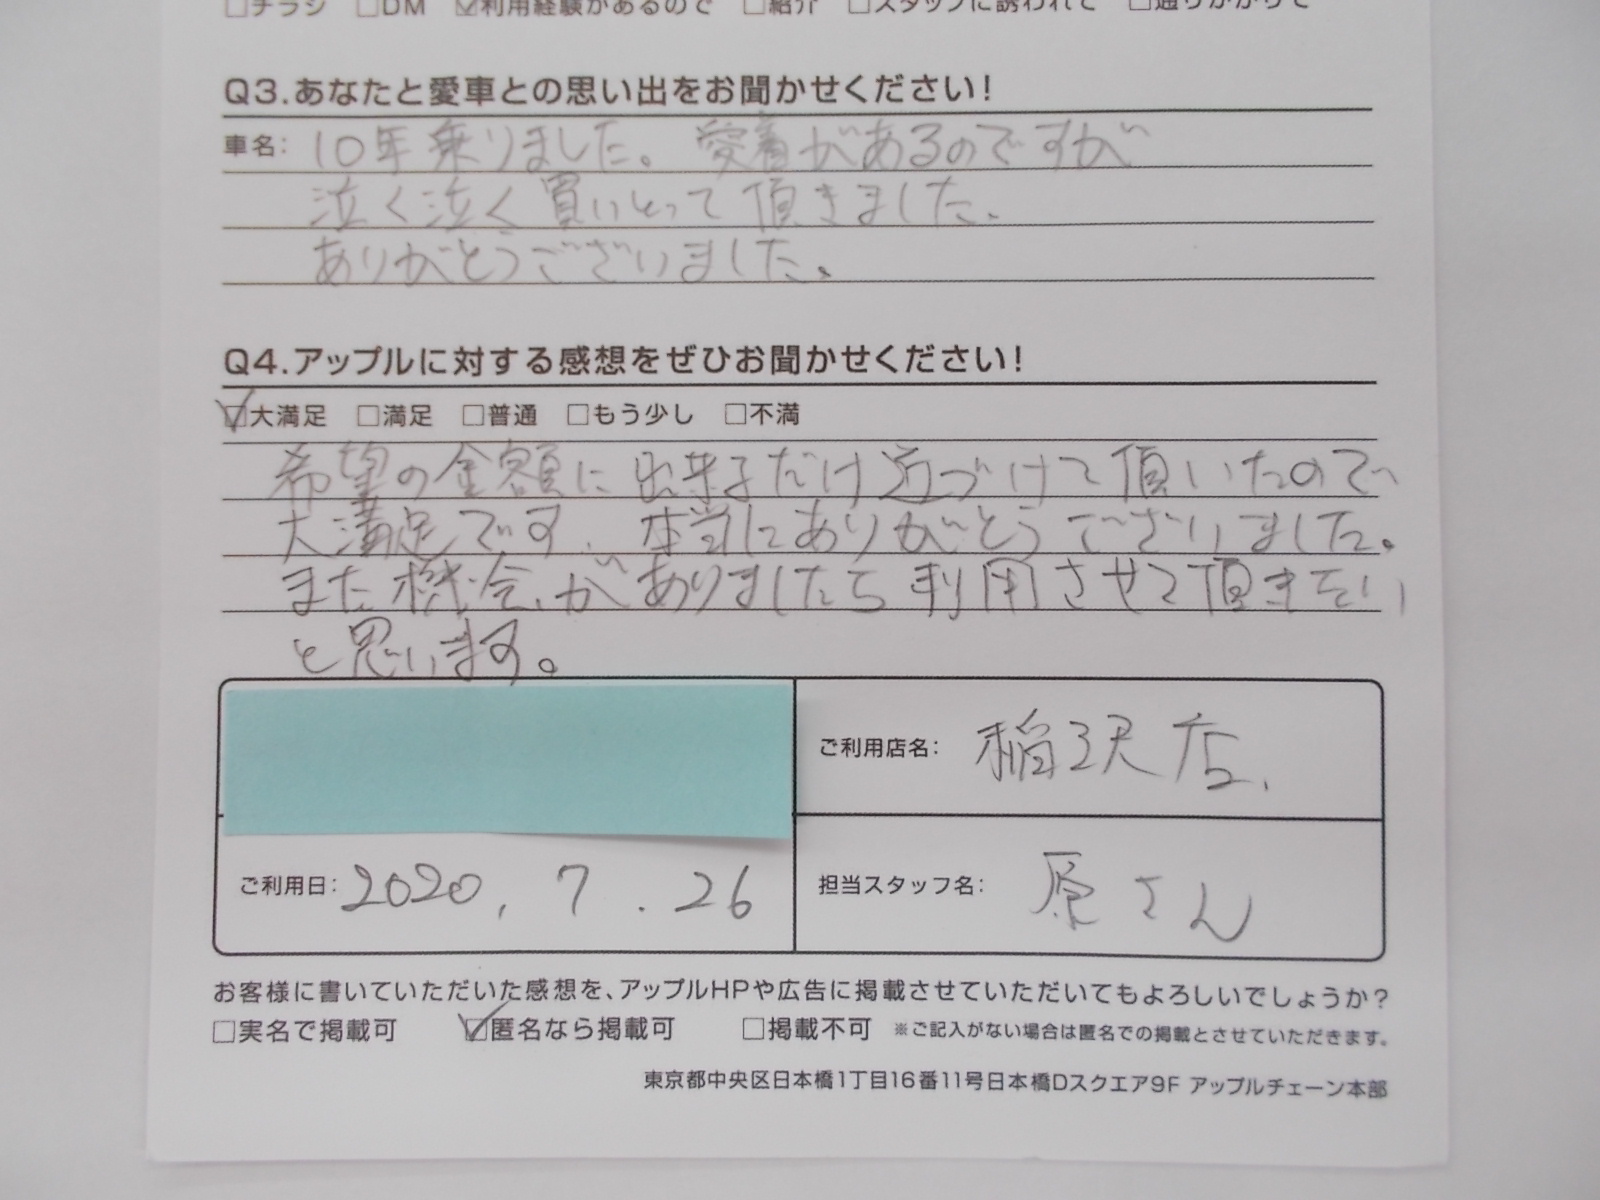 □チラシ □DM ☑利用経験があるので □紹介 □スタッフに誘われて □通りがかりで
Q3.あなたと愛車との思い出をお聞かせください!
車名: 10年乗りました。愛着があるのですが
泣く泣く買いとって頂きました。
ありがとうございました。
Q4.アップルに対する感想をぜひお聞かせください!
☑大満足 □満足 □普通 □もう少し □不満
希望の金額に出来るだけ近づけて頂いたので
大満足です。本当にありがとうございました。
また機会がありましたら利用させて頂きたい
と思います。
ご利用店名: 稲沢店
ご利用日: 2020. 7. 26
担当スタッフ名: 原さん
お客様に書いていただいた感想を、アップルHPや広告に掲載させていただいてもよろしいでしょうか?
□実名で掲載可 ☑匿名なら掲載可 □掲載不可 ※ご記入がない場合は匿名での掲載とさせていただきます。
東京都中央区日本橋1丁目16番11号日本橋Dスクエア9F アップルチェーン本部